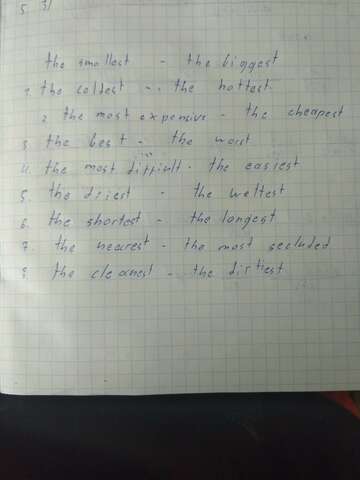 5 3/
the smallest - the biggest
1. the coldest - the hottest.
2 the most expensive - the cheapest
3 the best - the worst
4. the most difficult - the easiest
5. the driest - the wettest
6. the shortest - the longest
7. the nearest - the most secluded
8. the cleanest - the dirtiest